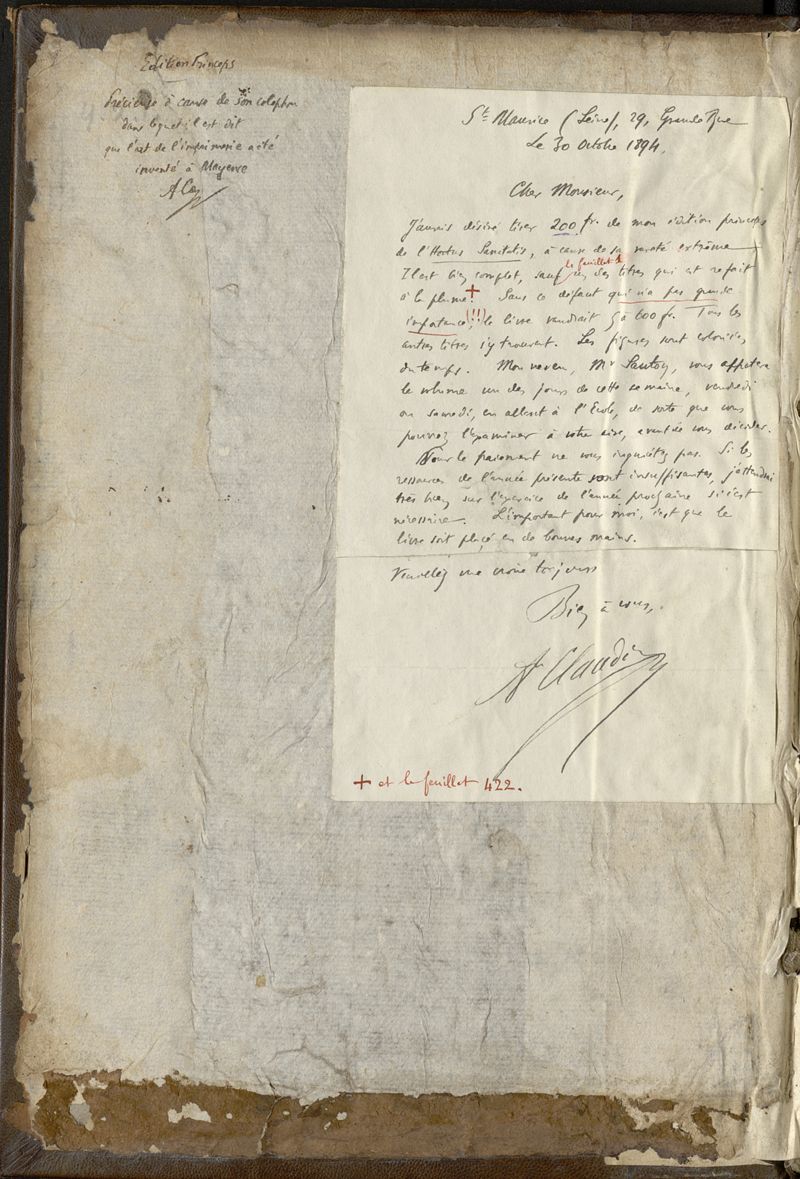 Edition Princeps
Précieuse à cause de son colophon
dans lequel il est dit
que l'art de l'imprimerie a été
inventé à Mayence
A Cl
St Maurice (Seine), 29, Grande Rue
Le 30 Octobre 1894.
Cher Monsieur,
J'aurais désiré tirer 200 fr. de mon édition princeps
de l'Hortus Sanitatis, à cause de sa rareté extrême
Il est bien complet, sauf un des titres qui est refait
le feuillet 1
à la plume. + Sans ce défaut qui n'a pas grande
importance (!!!), le livre vaudrait 5 à 600 fr. Tous les
autres titres s'y trouvent. Les figures sont coloriées
du temps. Mon neveu, Mr Sautoy, vous apportera
le volume un des jours de cette semaine, vendredi
ou samedi, en allant à l'Ecole, de sorte que vous
pourrez l'examiner à votre aise, avant de vous décider.
Pour le paiement ne vous inquiétez pas. Si les
ressources de l'année présente sont insuffisantes, j'attendrai
très bien sur l'exercice de l'année prochaine si c'est
nécessaire. L'important pour moi, c'est que le
livre soit placé en de bonnes mains.
Veuillez me croire toujours
Bien à vous,
A Claudin
+ et le feuillet 422.